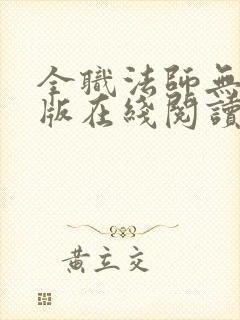 全職法師無
版在綫閱讀
黃立交